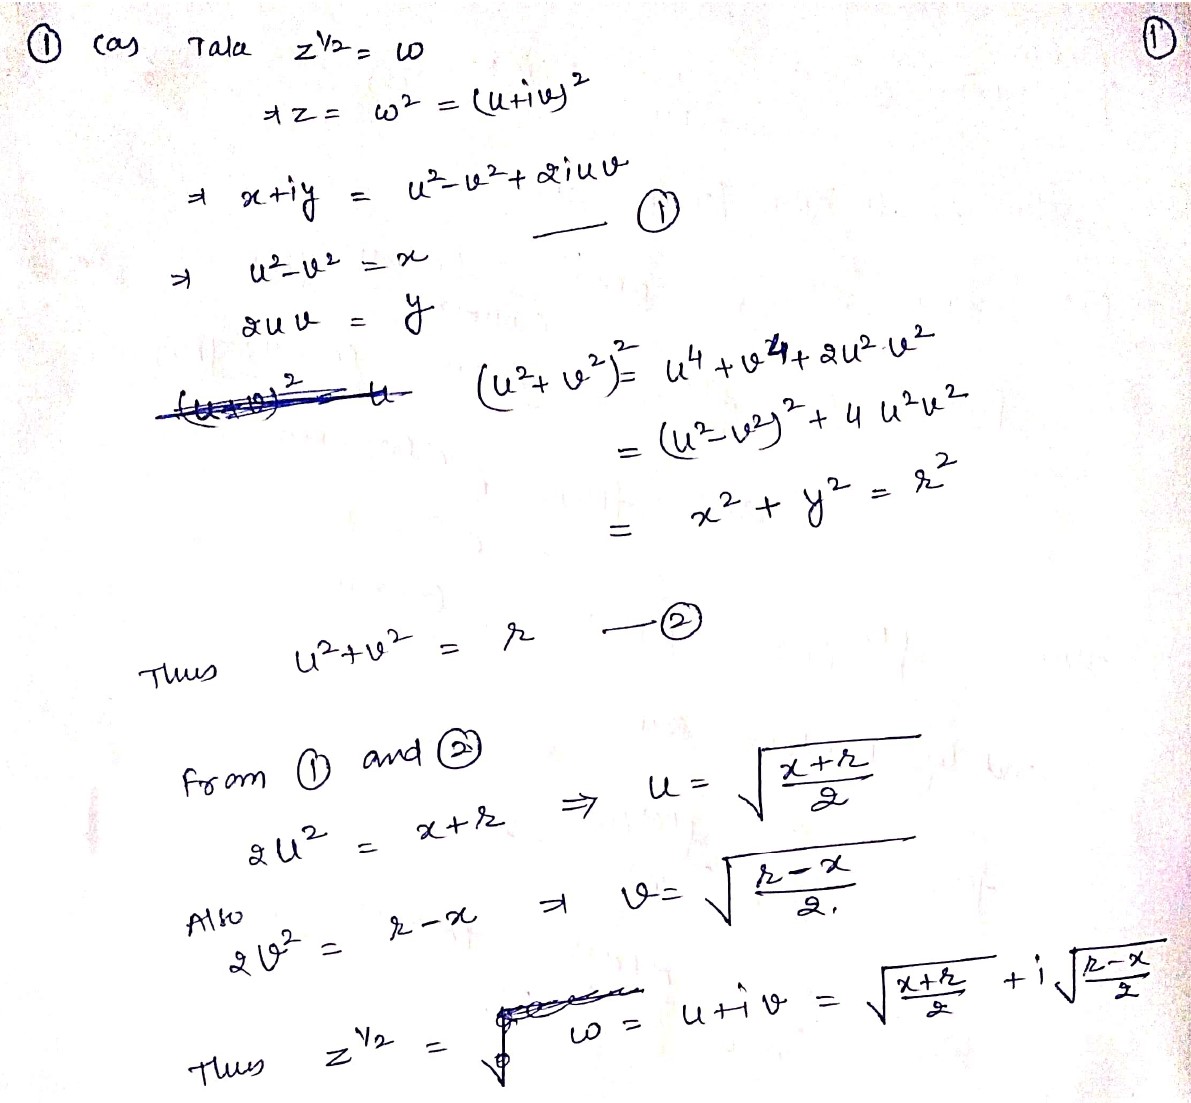 ① (a) Take z^{1/2} = ω ①
⇒ z = ω² = (u+iv)²
⇒ x+iy = u²-v²+2iuv
— ①
⇒ u²-v² = x
2uv = y
(u²+v²)² = u⁴+v⁴+2u².v²
= (u²-v²)²+4u²v²
= x²+y² = r²
Thus u²+v² = r —②
From ① and ②
2u² = x+r ⇒ u = √((x+r)/2)
Also
2v² = r-x ⇒ v = √((r-x)/2).
Thus z^{1/2} = ω = u+iv = √((x+r)/2) + i√((r-x)/2)